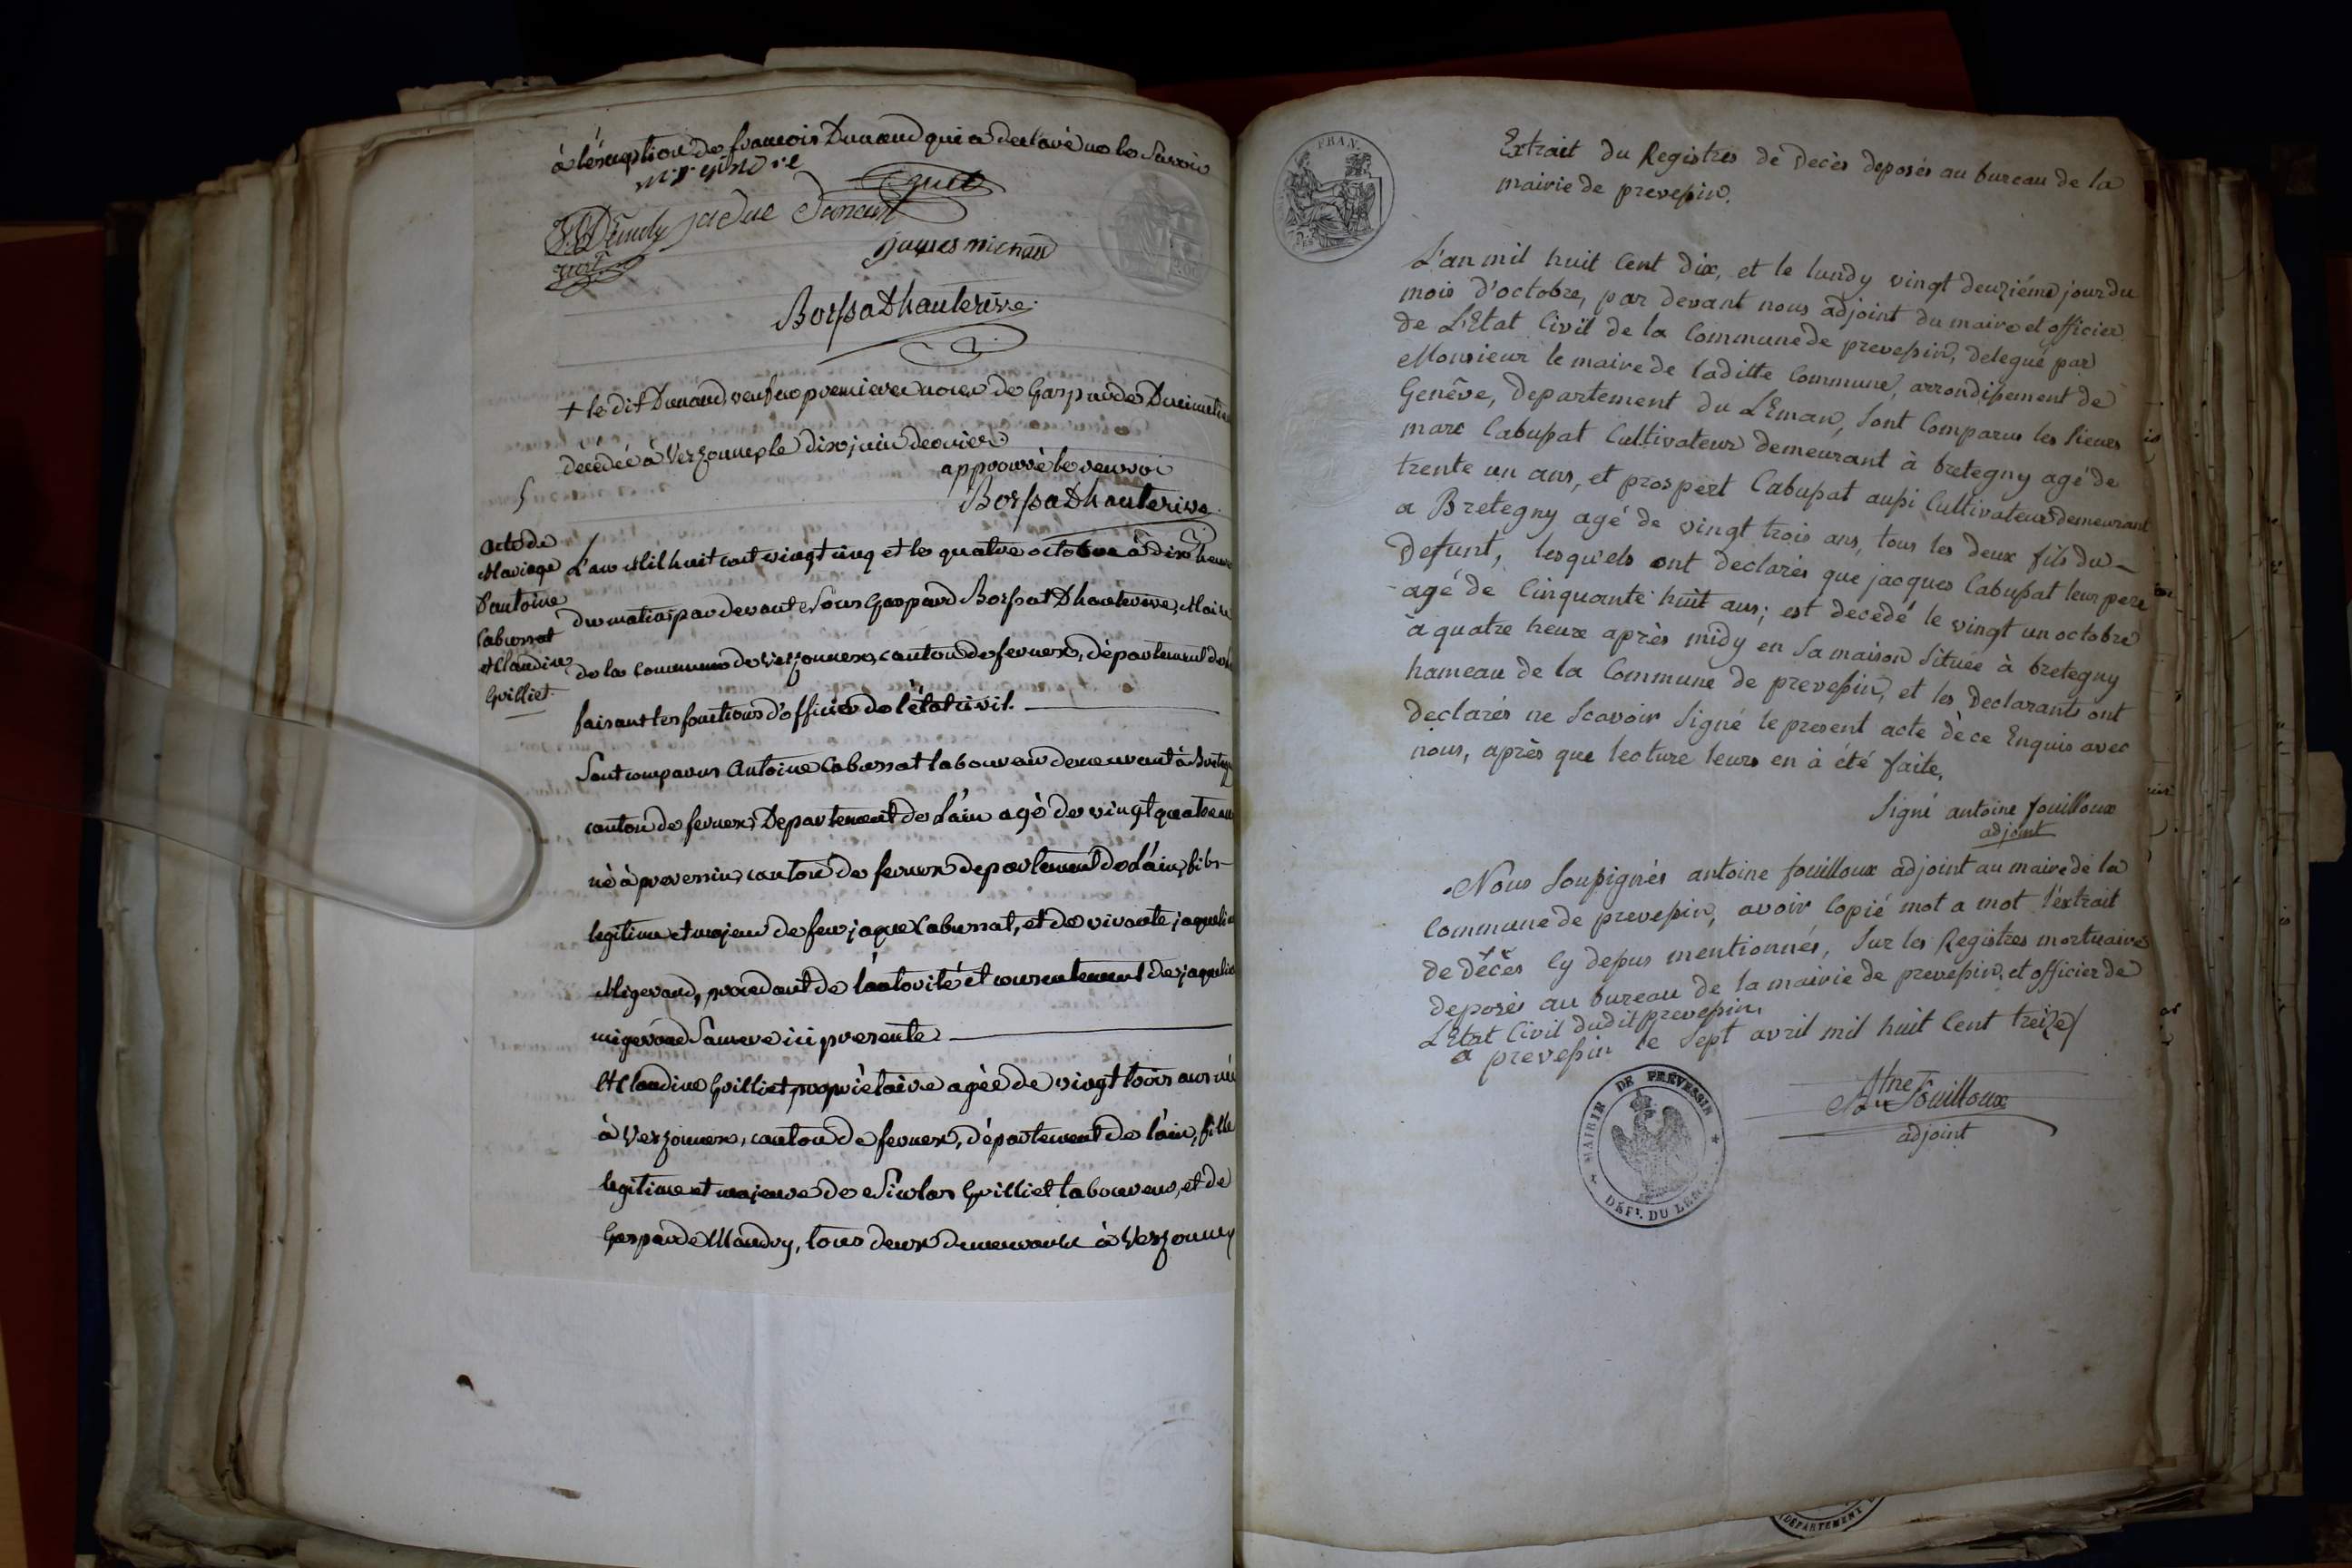 à l'éxception de francois Dunand qui a declaré ne le Savoir
jaques michau
Borssat Dhauterive
+ le dit Dunand, veuf en premiere noces de Gasparde
décédée à Versonnex le dix juin dernier.
approuvé le renvoi
Borssat Dhauterive
5
acte de
Mariage
D'antoine
Cabussat
et Claudine
Gvilliet
L'an Mil huit cent vingt cinq et le quatre octobre à dix heures
du matin par devant Nous Gaspard Borssat Dhauterive, Maire
de la commune de Versonnex, canton de fernex, département de
faisant les fonctions d'officier de l'état civil.
Sont comparus Antoine Cabussat laboureur demeurant à
canton de fernex, Departement de l'ain agé de vingt quatre ans
né à prevessin, canton de fernex departement de l'ain, fils
legitime et majeur de feu jaque Cabussat, et de vivante
Migerand, procedant de l'autorité et consentement de
migerand Sa mere ici presente
Et Claudine Gvilliet propriètaire agée de vingt trois ans née
à Versonnex, canton de fernex, département de l'ain, fille
legitime et majeure de Nicolas Gvilliet laboureur, et de
Gasparde Maudry, tous deux demeurants à Versonnex
FRAN.
Extrait du Registres de Decès deposés au bureau de la
mairie de prevessin.
L'an mil huit Cent dix, et le lundy vingt deuziéme jour du
mois d'octobre, par devant nous adjoint du maire et officier
de L'Etat Civil de la Commune de prevessin, delegué par
Monsieur le maire de laditte Commune, arrondissement de
Genêve, departement du LEman, Sont Comparus les Sieurs
marc Cabussat Cultivateur demeurant à bretegny agé de
trente un ans, et prospert Cabussat aussi Cultivateur demeurant
a Bretegny agé de vingt trois ans, tous les deux fils du
Defunt, lesqu'els ont declarés que jacques Cabussat leur pere
agé de Cinquante huit ans; est decedé le vingt un octobre
à quatre heure après midy en Sa maison Située à bretegny
hameau de la Commune de prevessin, et les Declarants ont
declarés ne Scavoir Signé le present acte dèce Enquis avec
nous, après que lecture leurs en à été faite,
Signé antoine fouilloux
adjoint
Nous Soussignés antoine fouilloux adjoint au maire de la
Commune de prevessin, avoir Copié mot a mot l'extrait
de dècès Cy dessus mentionnés, Sur les Registres mortuaire
deposés au bureau de la mairie de prevessin, et officier de
L'Etat Civil dudit prevessin.
a prevessin le Sept avril mil huit Cent treize
Atne Fouilloux
adjoint
MAIRIE DE PRÉVESSIN
DÉPt. DU LÉMAN
DÉPARTEMENT